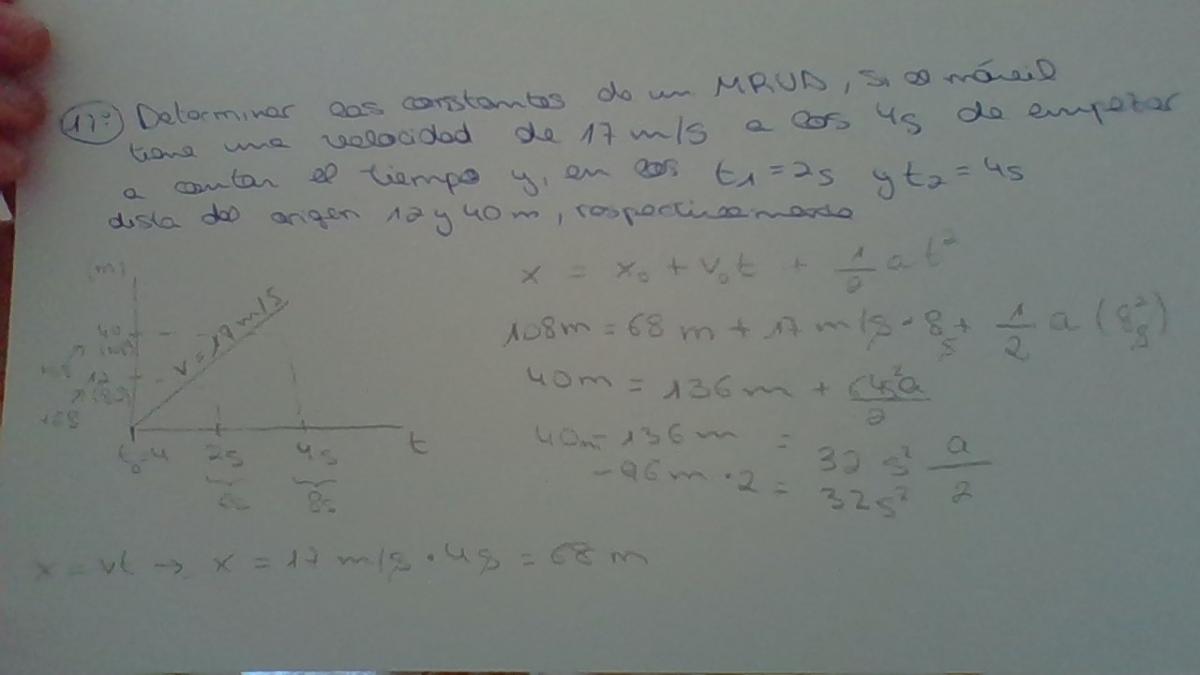 17º Determinar las constantes de un MRUA, si el móvil
tiene una velocidad de 17 m/s a los 4s de empezar
a contar el tiempo y, en los t1 = 2s y t2 = 4s
dista del origen 12 y 40 m, respectivamente
x = x0 + v0t + 1/2 a t²
108m = 68 m + 17 m/s · 8s + 1/2 a (8²s)
40m = 136m + 64s²a/2
40m - 136m = 32 s² a/2
-96m · 2 = 32s²
(m)
40
12
v = 17 m/s
+68
t0=-4 2s 4s t
6s 8s
x = vt → x = 17 m/s · 4s = 68 m